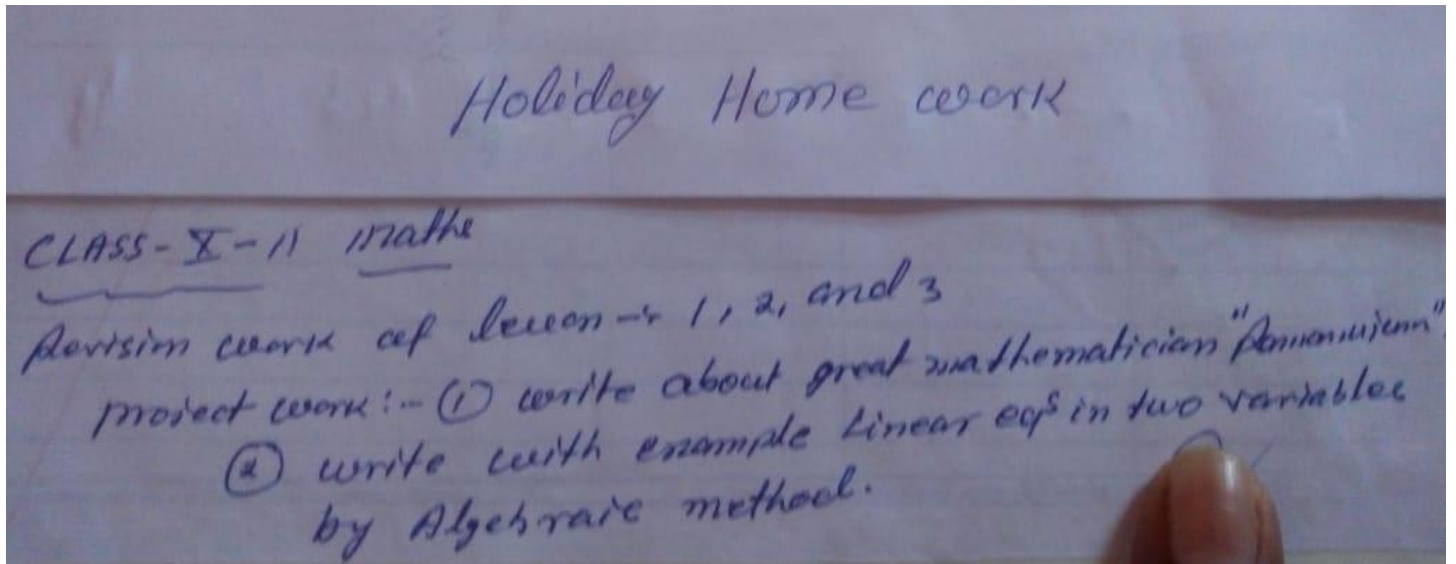 Holiday Home work
CLASS - X - A Maths
Revision work of lesson → 1, 2, and 3
Project work :- ① write about great mathematician "Ramanujann"
② write with example Linear eqs in two variables
by Algebraic method.